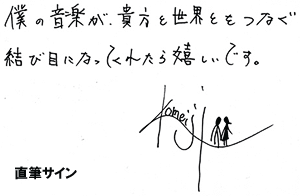 僕の音楽が、貴方と世界とをつなぐ
結び目になってくれたら嬉しいです。
Komei
直筆サイン